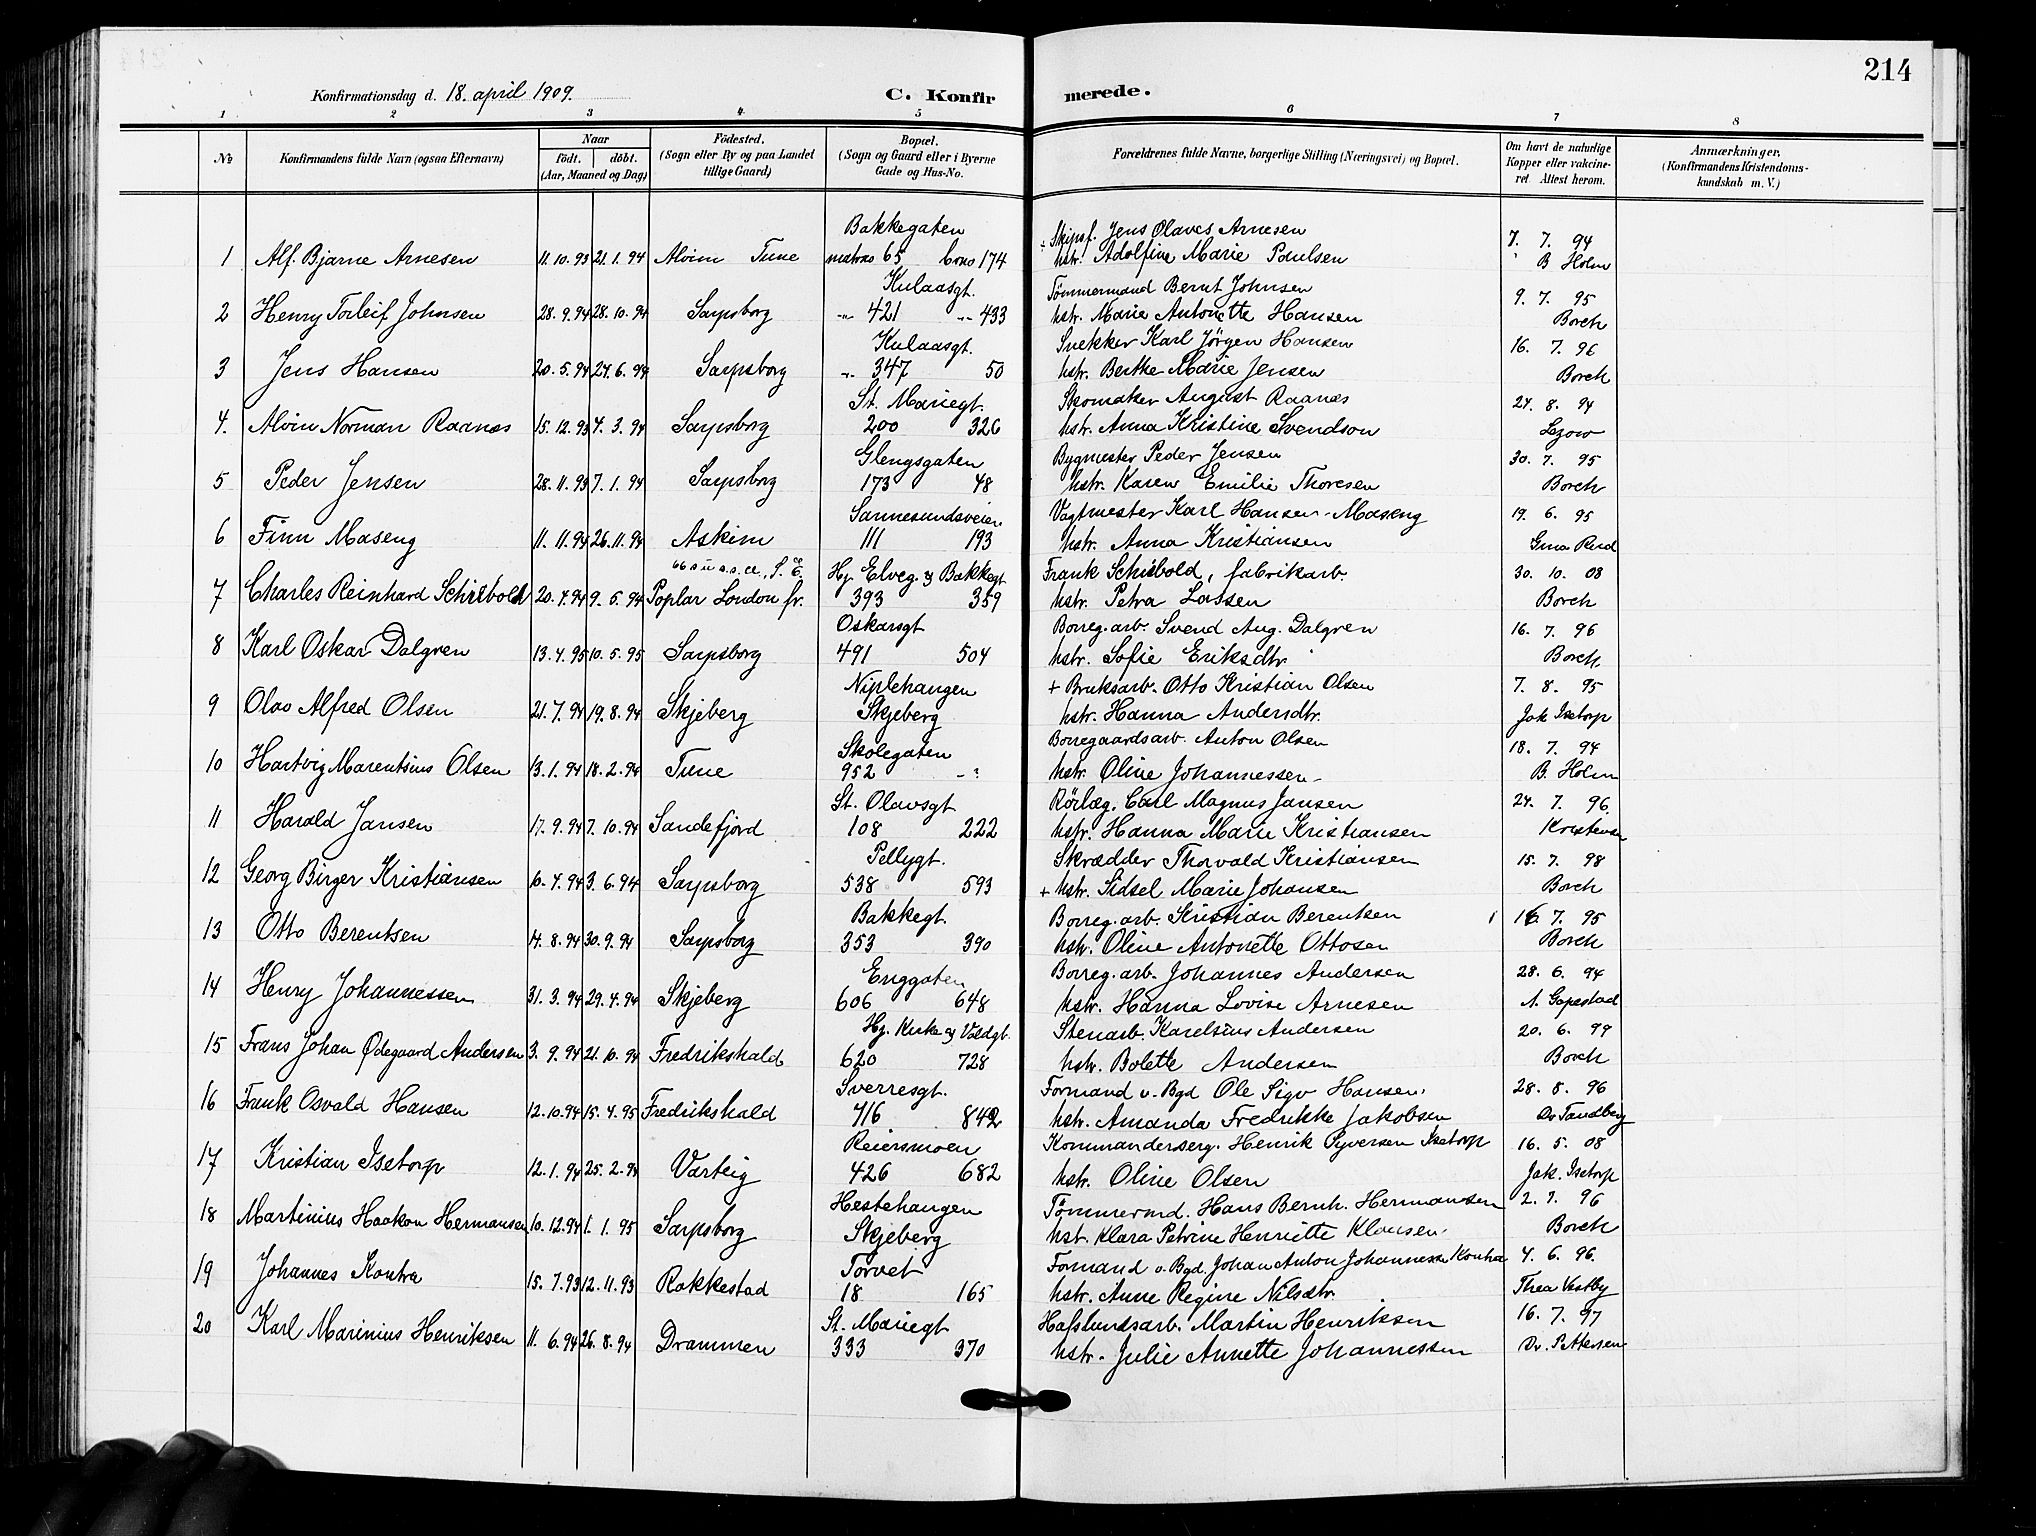 214
Konfirmationsdag d. 18. april 1909. C. Konfirmerede.
1 2 3 4. 5 6 7 8
No Konfirmandens fulde Navn (ogsaa Efternavn) Naar födt. döbt. (Aar, Maaned og Dag) Födested. (Sogn eller By og paa Landet tillige Gaard) Bopæl. (Sogn og Gaard eller i Byerne Gade og Hus-No. Forældrenes fulde Navne, borgerlige Stilling (Næringsvei) og Bopæl. Om havt de naturlige Kopper eller vakcineret Attest herom. Anmærkninger. (Konfirmandens Kristendomskundskab m. V.)
Bakkegaten + Skipsf. Jens Olaves Arnesen 7. 7. 94
1 Alf. Bjarne Arnesen 11. 10. 93 21. 1. 94 Alvim Tune matrno 65 brno 174 hstr. Adolfine Marie Paulsen B Holm
Kulaasgt. Tömmermand Bernt Johnsen 9. 7. 95
2 Henry Torleif Johnsen 28. 9. 94 28. 10. 94 Sarpsborg -"- 421 -"- 433 hstr. Marie Antonette Hansen Borch
Kulaasgt. Snekker Karl Jörgen Hansen 16. 7. 96
3 Jens Hansen 20. 5. 94 24. 6. 94 Sarpsborg -"- 347 50 hstr. Berthe Marie Jensen Borch
St. Mariegt. Skomaker August Raanæs 24. 8. 94
4. Alvin Norman Raanæs 15. 12. 93 4. 3. 94 Sarpsborg 200 326 hstr. Anna Kristine Svendson Lezow
Glengsgaten Bygmester Peder Jensen 30. 7. 95
5 Peder Jensen 28. 11. 93 7. 1. 94 Sarpsborg 173 48 hstr. Karen Emilie Thoresen Borch
Sannesundsveien Vagtmester Karl Hansen-Maseng 19. 6. 95
6 Finn Maseng 11. 11. 94 26. 11. 94 Askim 111 193 hstr. Anna Kristiansen Gina Rud
Hj. Elveg. og Bakkegt. Frank Schibold, fabrikarb. 30. 10. 08
7 Charles Reinhard Schibold 20. 4. 94 9. 5. 94 Poplar London fr. 393 359 hstr. Petra Lassen Borch
Oskarsgt Borreg. arb. Svend Aug. Dalgren 16. 7. 96
8 Karl Oskar Dalgren 13. 4. 95 10. 5. 95 Sarpsborg 491 504 hstr. Sofie Eriksdtr. Borch
Niplehaugen + Bruksarb. Otto Kristian Olsen 7. 8. 95
9 Olav Alfred Olsen 21. 7. 94 19. 8. 94 Skjeberg Skjeberg hstr. Hanna Andersdtr. Jak Isetorp
Skolegaten Borregaardsarb. Anton Olsen 18. 7. 94
10 Hartvig Marentsius Olsen 13. 1. 94 18. 2. 94 Tune 952 -"- hstr. Oline Johannessen B. Holm
St. Olavsgt Rörlæg. Carl Magnus Jansen 24. 7. 96.
11 Harald Jansen 17. 9. 94 7. 10. 94 Sandefjord 108 222 hstr. Hanna Marie Kristiansen Kristensen
Pellygt. Skrædder Thorvald Kristiansen 15. 7. 98
12 Georg Birger Kristiansen 10. 4. 94 3. 6. 94 Sarpsborg 538 593 + hstr. Sidsel Marie Johansen Borch
Bakkegt. Borreg. arb. Kristian Berentsen 16. 7. 95
13 Otto Berentsen 14. 8. 94 30. 9. 94 Sarpsborg 353 390 hstr. Oline Antonette Ottosen Borch
Enggaten Borreg. arb. Johannes Andersen 28. 6. 94
14 Henry Johannessen 31. 3. 94 29. 4. 94 Skjeberg 606 648 hstr. Hanna Lovise Arnesen A. Gapestad
Hj. Kirke og Voldgt. Stenarb. Karelius Andersen 20. 6. 99
15 Frans Johan Ødegaard Andersen 3. 9. 94 21. 10. 94 Fredrikshald 620 728 hstr. Bolette Andersen Borch
Sverresgt. Formand v. Bgd Ole Sigv Hansen. 28. 8. 96
16 Frank Osvald Hansen 12. 10. 94 15. 4. 95 Fredrikshald 716 842 hstr. Amanda Fredrikke Jakobsen Dr Tandberg
Reiersmoen Kommandersерg. Henrik Syversen Isetorp 16. 5. 08
17 Kristian Isetorp 12. 1. 94 25. 2. 94 Varteig 426 682 hstr. Oline Olsen Jak. Isetorp
Hestehaugen Tömmermd. Hans Bernh. Hermansen 2. 7. 96
18 Martinius Haakon Hermansen 10. 12. 94 1. 1. 95 Sarpsborg Skjeberg hst. Klara Petrine Henriette Klausen. Borch
Torvet Formand v. Bgd. Johan Anton Johannessen Kontra 4. 6. 96.
19 Johannes Kontra 15. 7. 93 12. 11. 93 Rakkestad 18 165 hstr. Anne Regine Nilsdtr. Thea Vestby
St. Mariegt Hafslundsarb. Martin Henriksen 16. 7. 97
20 Karl Marinius Henriksen 11. 6. 94 26. 8. 94 Drammen 333 370 hstr. Julie Annette Johannessen Dr. Pettersen